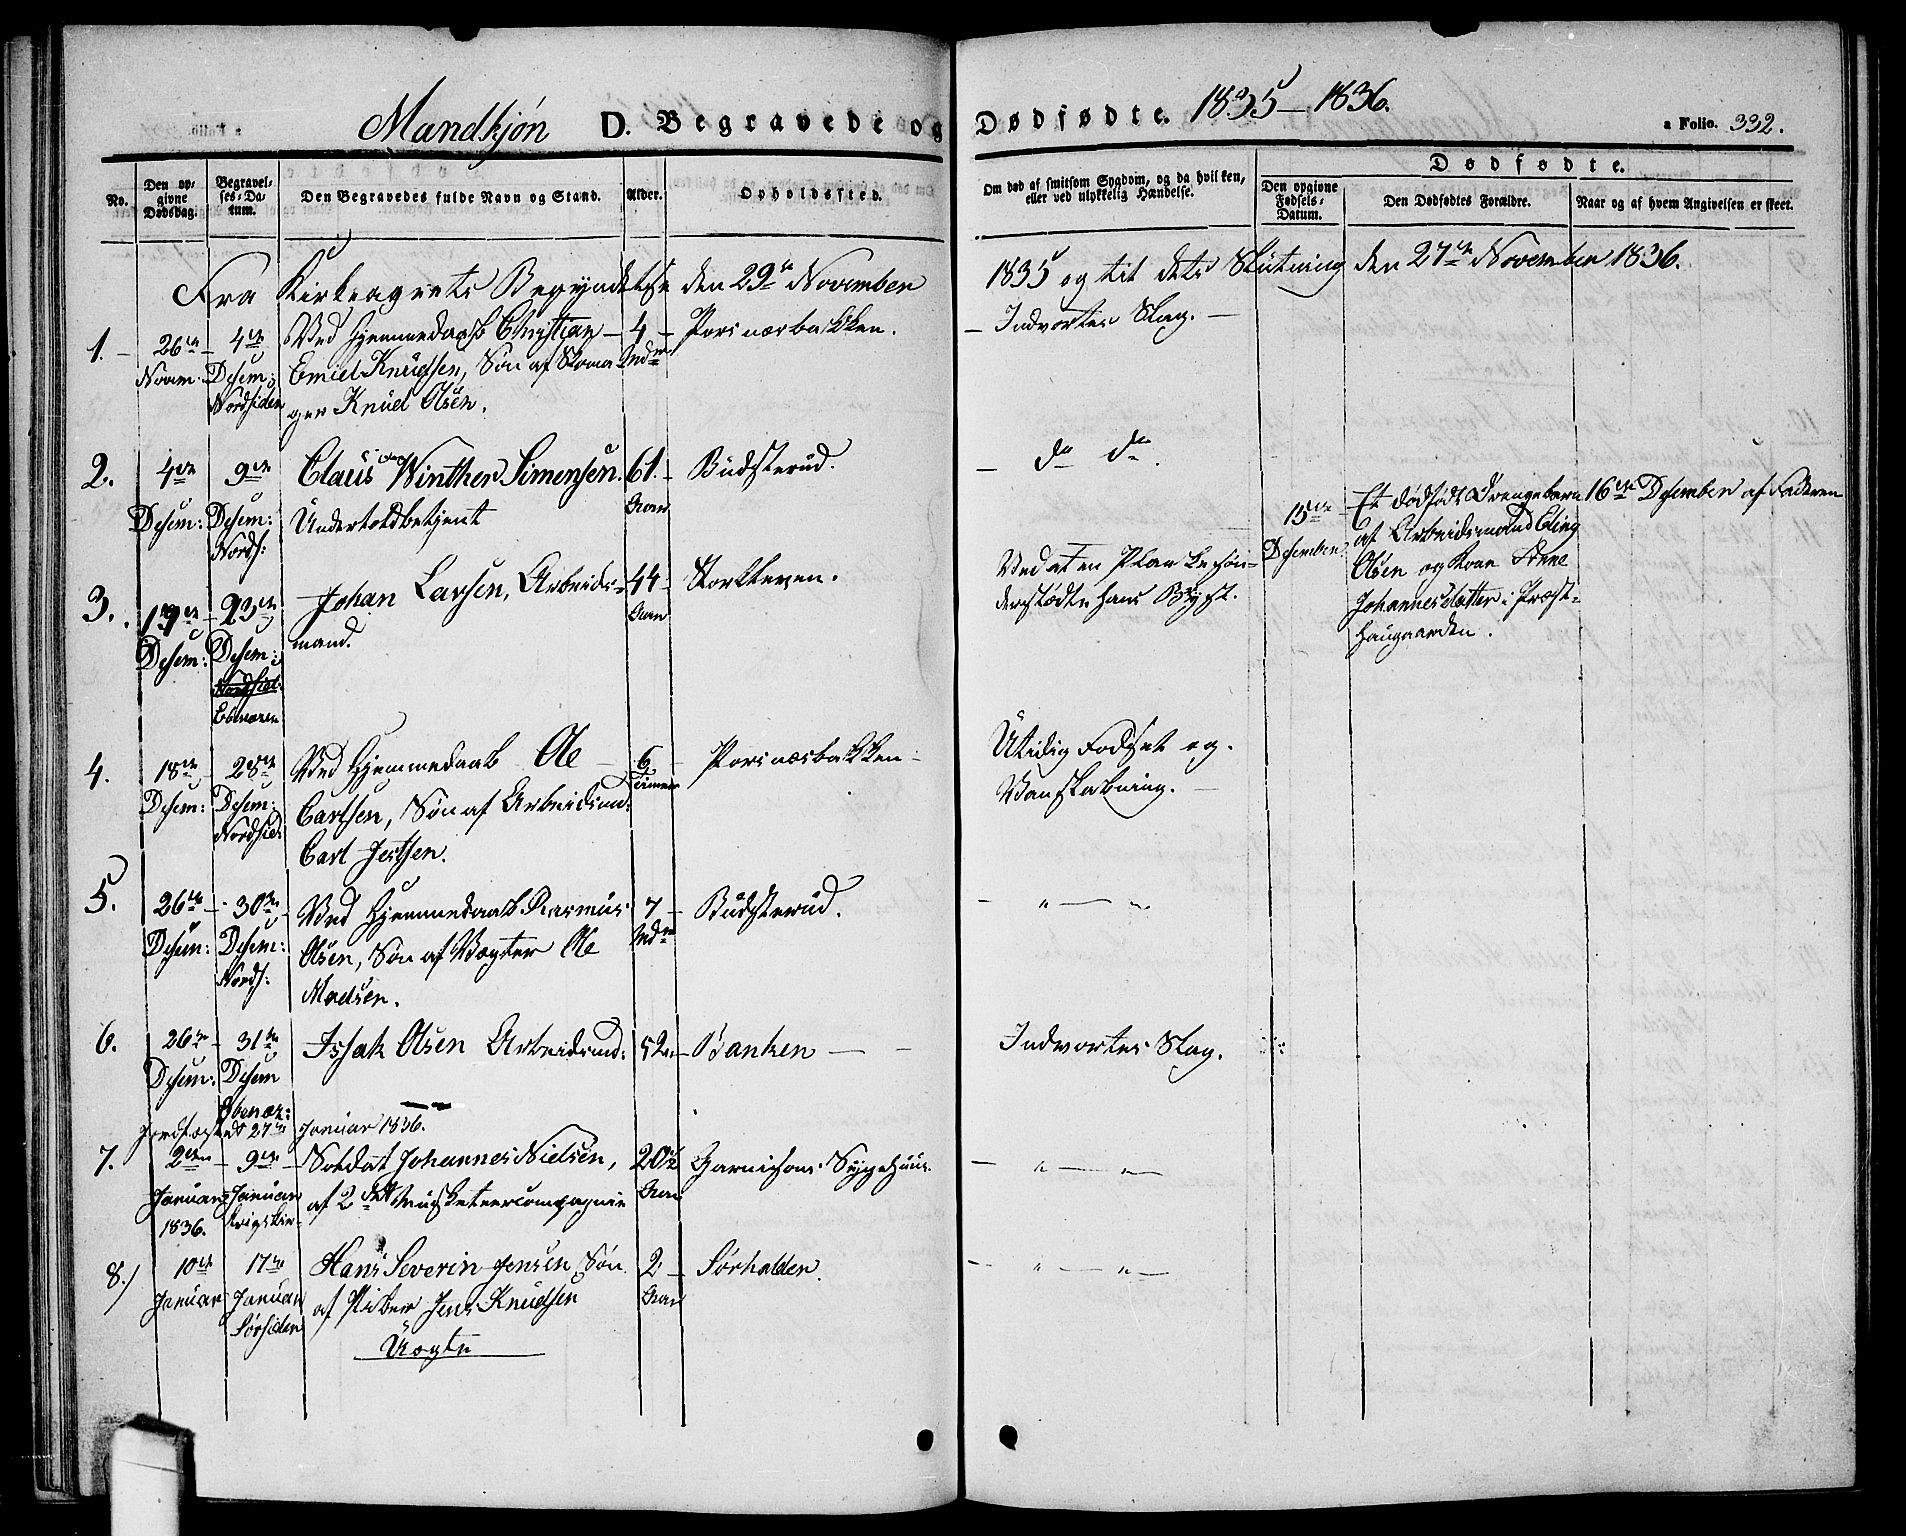 Mandkjøn D. Begravede og Dødfødte. 1835–1836. a Folio. 332.
No.
Den opgivne Dødsdag.
Begravelses-Datum.
Den Begravedes fulde Navn og Stand.
Alder.
Opholdssted.
Om død af smitsom Sygdom, og da hvilken, eller ved ulykkelig Hændelse.
Dødfødte.
Den opgivne Fødsels-Datum.
Den Dødfødtes Forældre.
Naar og af hvem Angivelsen er skeet.
Fra Kirkeaarets Begyndelse den 29de November 1835 og til dets Slutning den 27de November 1836.
1. 26de Novem. 4de Desem: Nordsiden
Ved Hjemmedaab Christian
Emiel Knudsen, Søn af Skoma-
ger Knud Olsen.
4 Mdr Porsnæsbakken. Indvortes Slag.
2. 4de Desem: 9de Desem: Nords:
Claus Winther Simensen.
Undertoldbetjent
61. Aar Budsterud. do do.
15de Desember
Et dødfødt Drengebarn
af Arbeidsmand Eling
Olsen og Kone Anne
Johannesdatter i Præst-
haugaarden.
16de Desember af Faderen
3. 19de Desem: 23de Desem: Nordsid:
Johan Larsen, Arbeids-
mand.
44 Aar Storkleven.
Ved at en Planke søn-
derstødte hans Bryst.
4. 18de Desem: 28de Desem: Nordsid:
Ved Hjemmedaab Ole
Carlsen, Søn af Arbeidsmd:
Carl Jertsen.
6 Timer Porsnæsbakken
Utidig Fødsel og
Vanskabning.
5. 26de Desem: 30te Desem: Nords:
Ved Hjemmedaab Rasmus
Olsen, Søn af Vægter Ole
Madsen.
7 Mdr Budsterud. " — "
6. 26de Desem: 31te Desem
Issak Olsen Arbeidsmd:
52 Banken Indvortes Slag.
Jordfæstet 27de Januar 1836.
7. 2den Januar 1836. 9de Januar
Soldat Johannes Nielsen,
af 2det Musketeercompagnie
20½ Aar Garnisons Sygehuus. " — "
8.) 10de Januar 17de Januar Sørsiden
Hans Severin Jensen, Søn
af Piber Jens Knudsen
Uægte
2 Aar Sørhalden. " — "